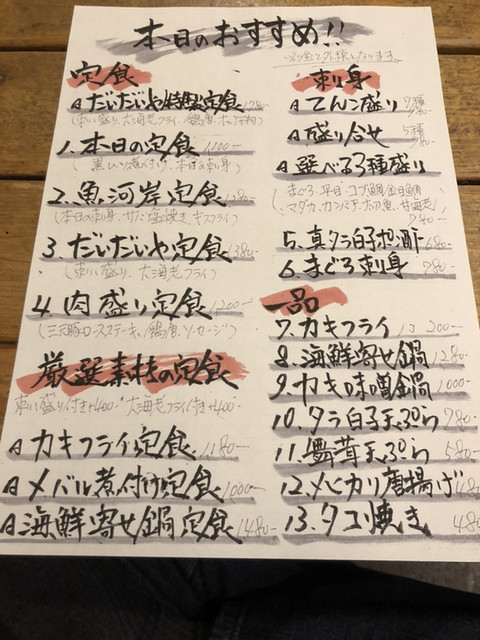 本日のおすすめ!!
定食
A だいだいや特製定食
(刺し盛り、大海老フライ、鶏唐
1. 本日の定食 1100-
煮付け、本日の刺身)
2. 魚河岸定食 1280-
(本日の刺身、サバ塩焼き、キスフライ)
3. だいだいや定食 1380-
(刺し盛り、大海老フライ)
4. 肉盛り定食 1200-
(三元豚ロースステーキ、鶏唐、ソーセージ)
厳選素材の定食
刺し盛り付き+400- 大海老フライ付き+400-
A カキフライ定食 1180-
A メバル煮付け定食 1000-
A 海鮮寄せ鍋定食 1480-
刺身
A てんこ盛り 7種
A 盛り合せ 5種
A 選べる3種盛り
(まぐろ、平目、コブ鯛、金目鯛
、マダカ、カンパチ、太刀魚、甘海老)
780-
5. 真タラ白子ポン酢 680-
6. まぐろ刺身 780-
一品
7. カキフライ 1コ 200-
8. 海鮮寄せ鍋 1280-
9. カキ味噌鍋 1000-
10. タラ白子天ぷら 780-
11. 舞茸天ぷら 580-
12. メヒカリ唐揚げ 480-
13. タコ焼き 480-